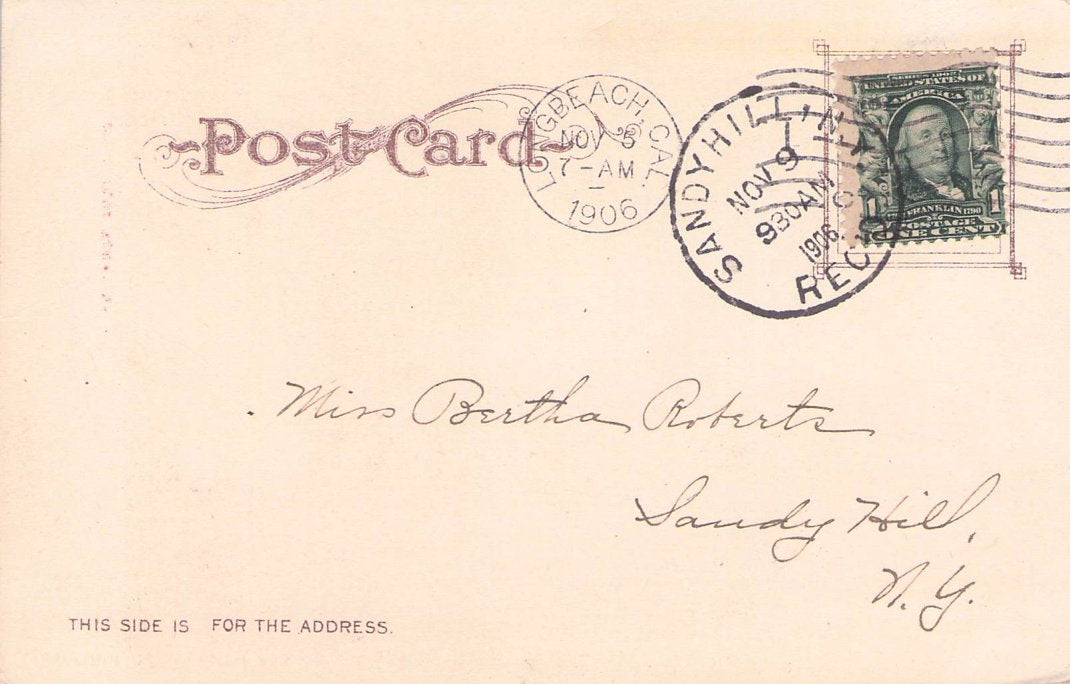 Post Card
LONG BEACH, CAL.
NOV 5
7-AM
1906
SANDY HILL, N.Y.
NOV 9
930AM
1906
REC'D
SERIES 1902
UNITED STATES OF
AMERICA
1 1
FRANKLIN 1790
POSTAGE
ONE CENT
Miss Bertha Roberts
Sandy Hill,
N.Y.
THIS SIDE IS FOR THE ADDRESS.